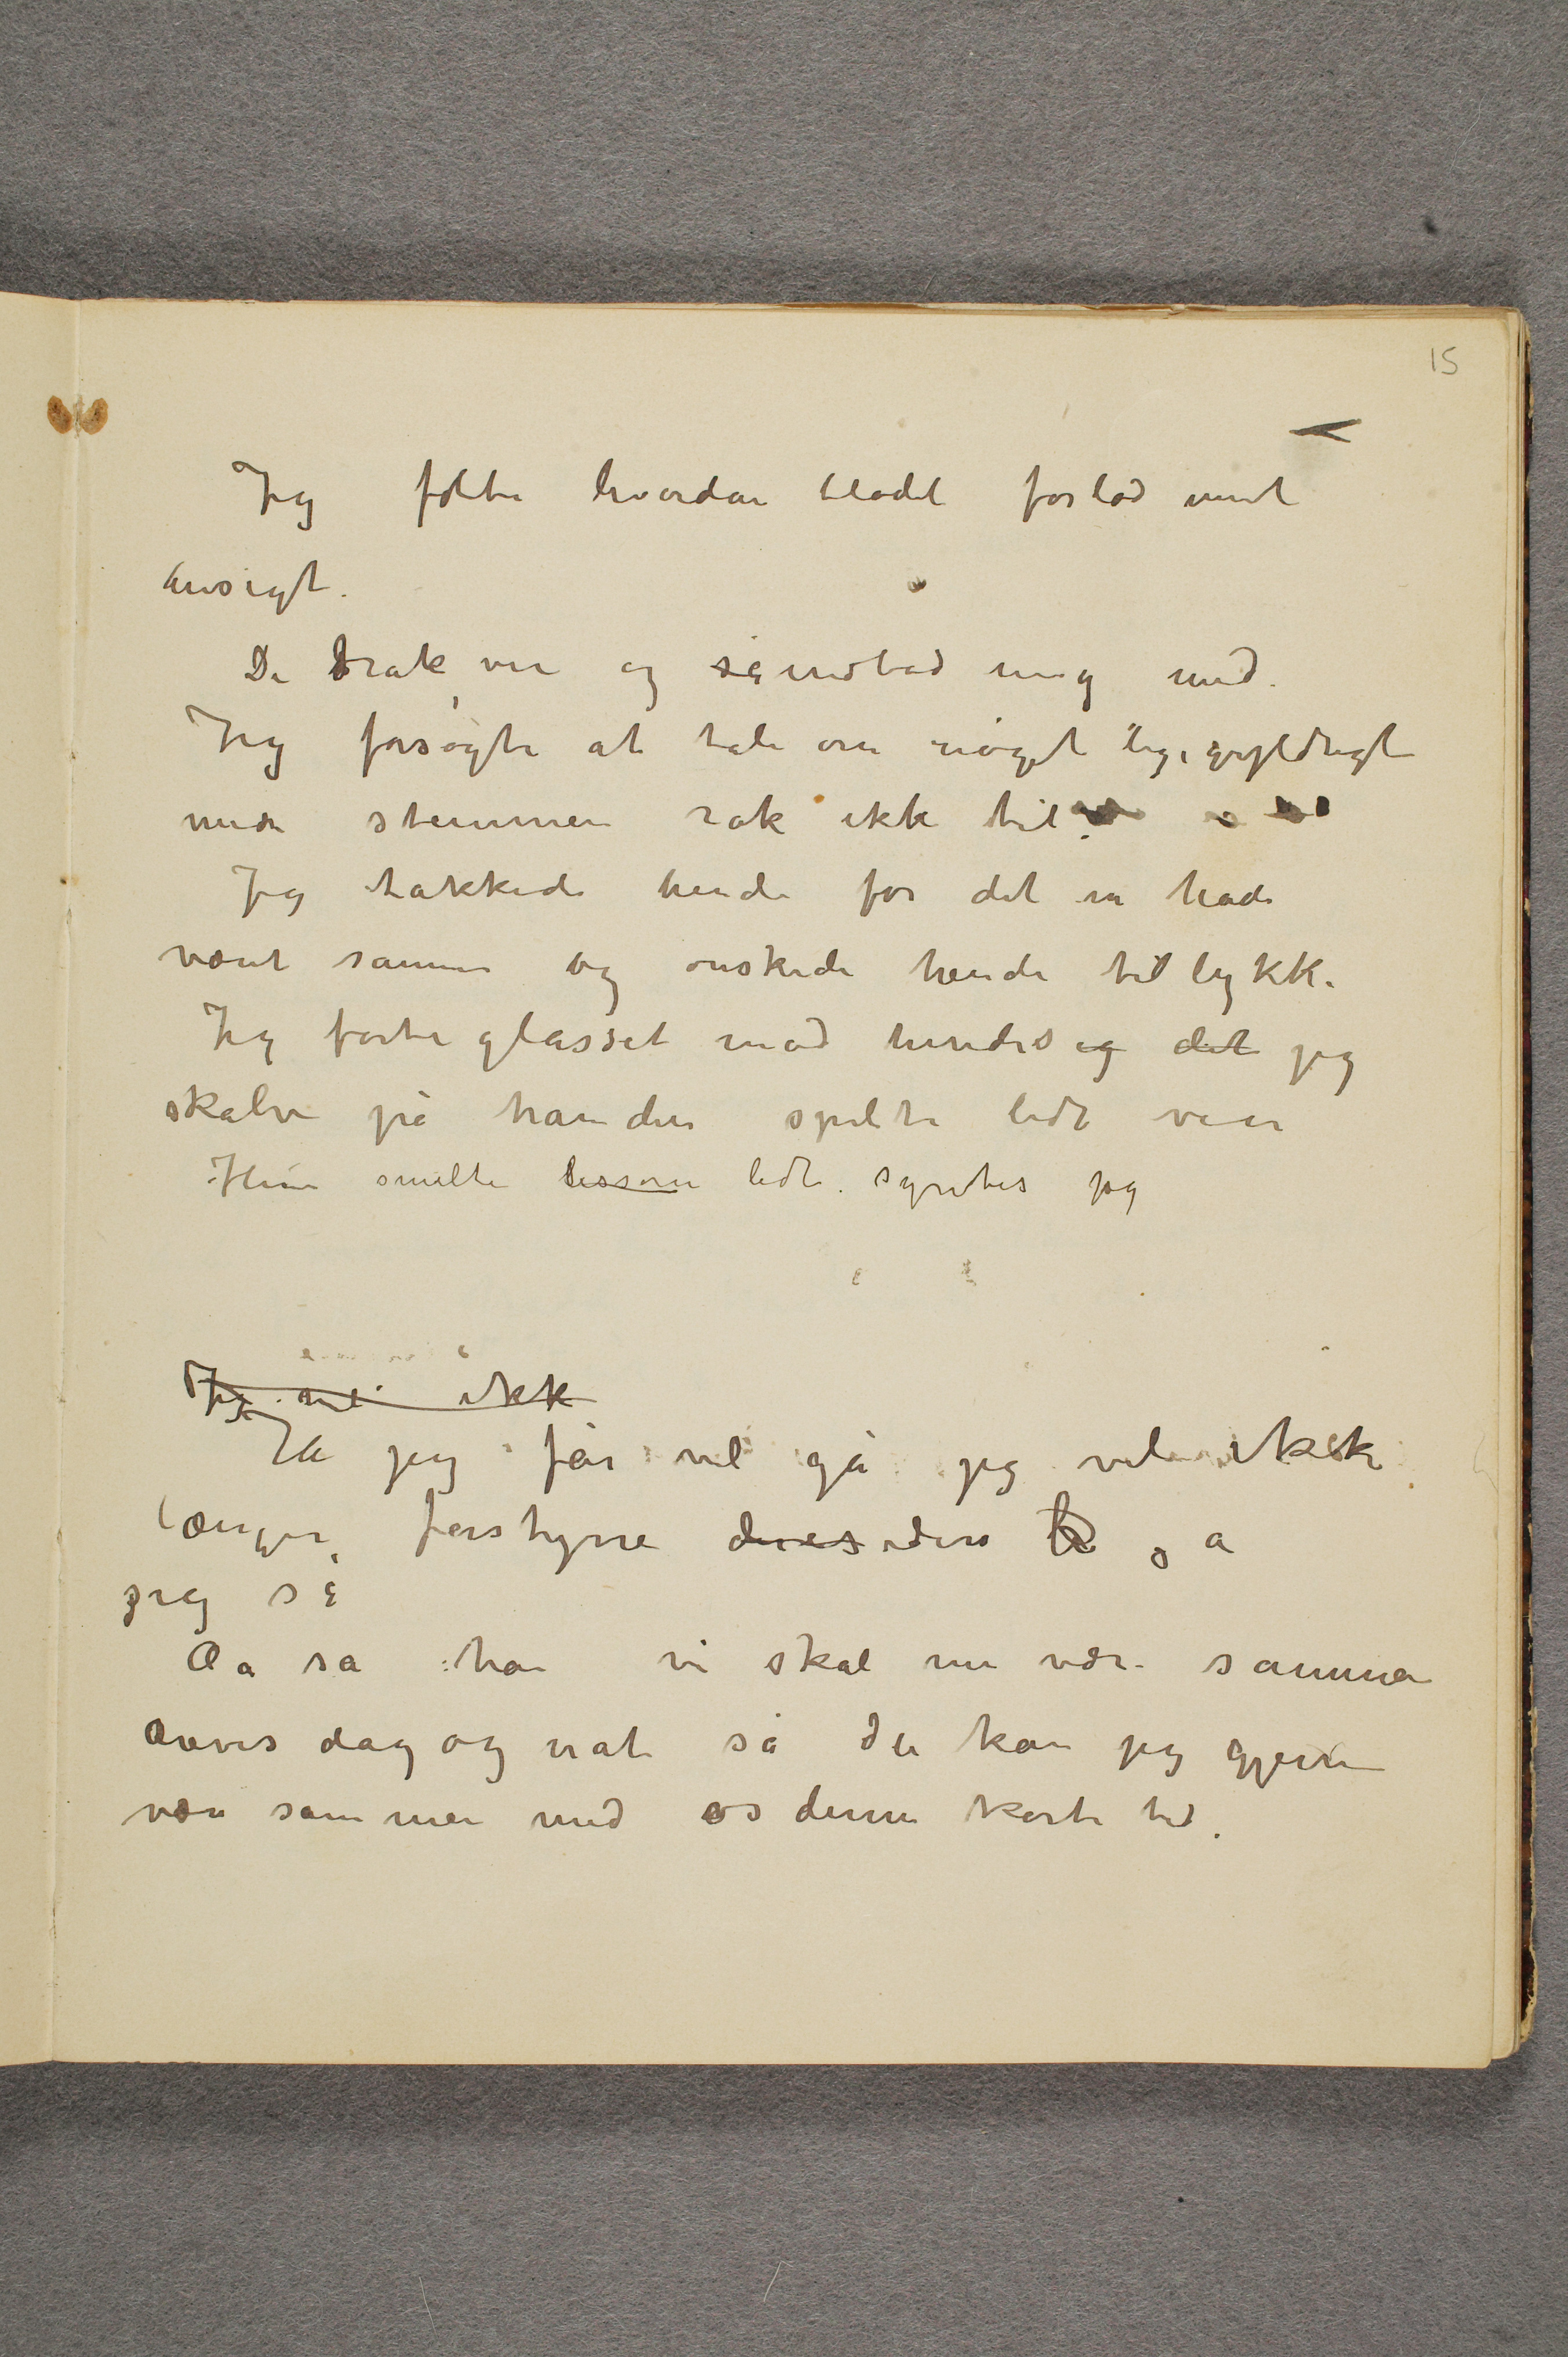 15
Jeg følte hvordan blodet forlod mit
ansigt.
De drak vin og indbød mig med.
Jeg forsøgte at tale om noget ligegyldigt
men stemmen rak ikke til.
Jeg takkede hende for det vi hade
været sammen og ønskede hende tillykke
Jeg førte glasset mod hendes og det jeg
skalv på hånden spilte lidt vin
Hun smilte lissom lidt. syntes jeg
Jeg vil ikke
Ja jeg får vel gå jeg vil ikke
længer forstyrre deres dere sa
jeg så
Aa sa han vi skal nu være sammen
årevis dag og nat så du kan jeg gjerne
være sammen med os denne korte tid.